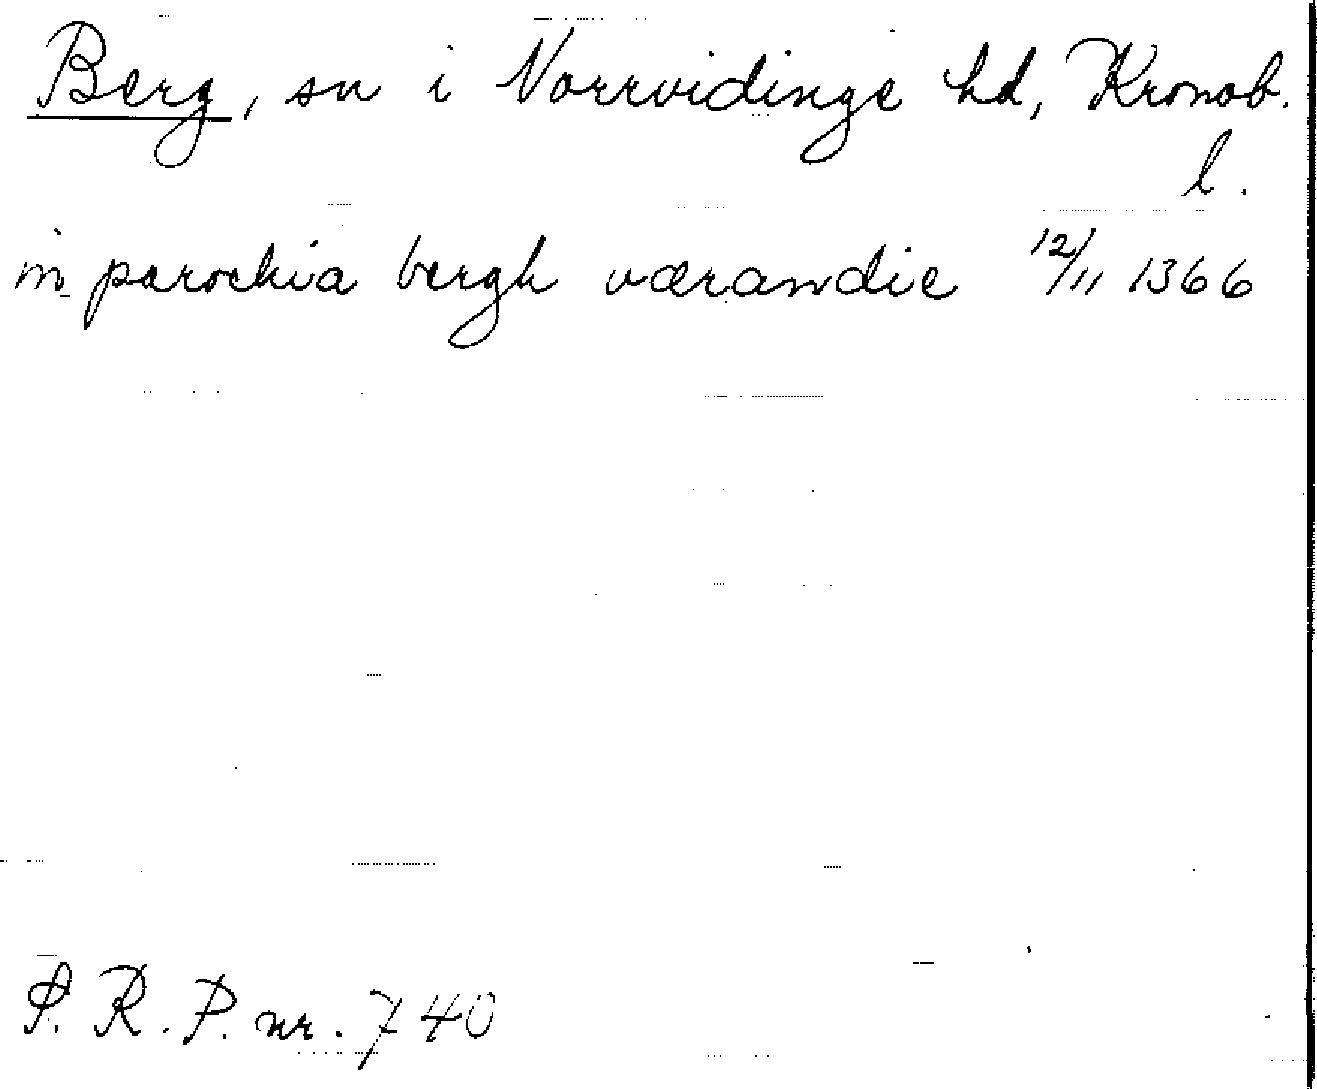 Berg, sn i Norrvidinge hd, Kronob.
l.
in parochia berghværandie 12/11 1366
S. R. P. nr. 740